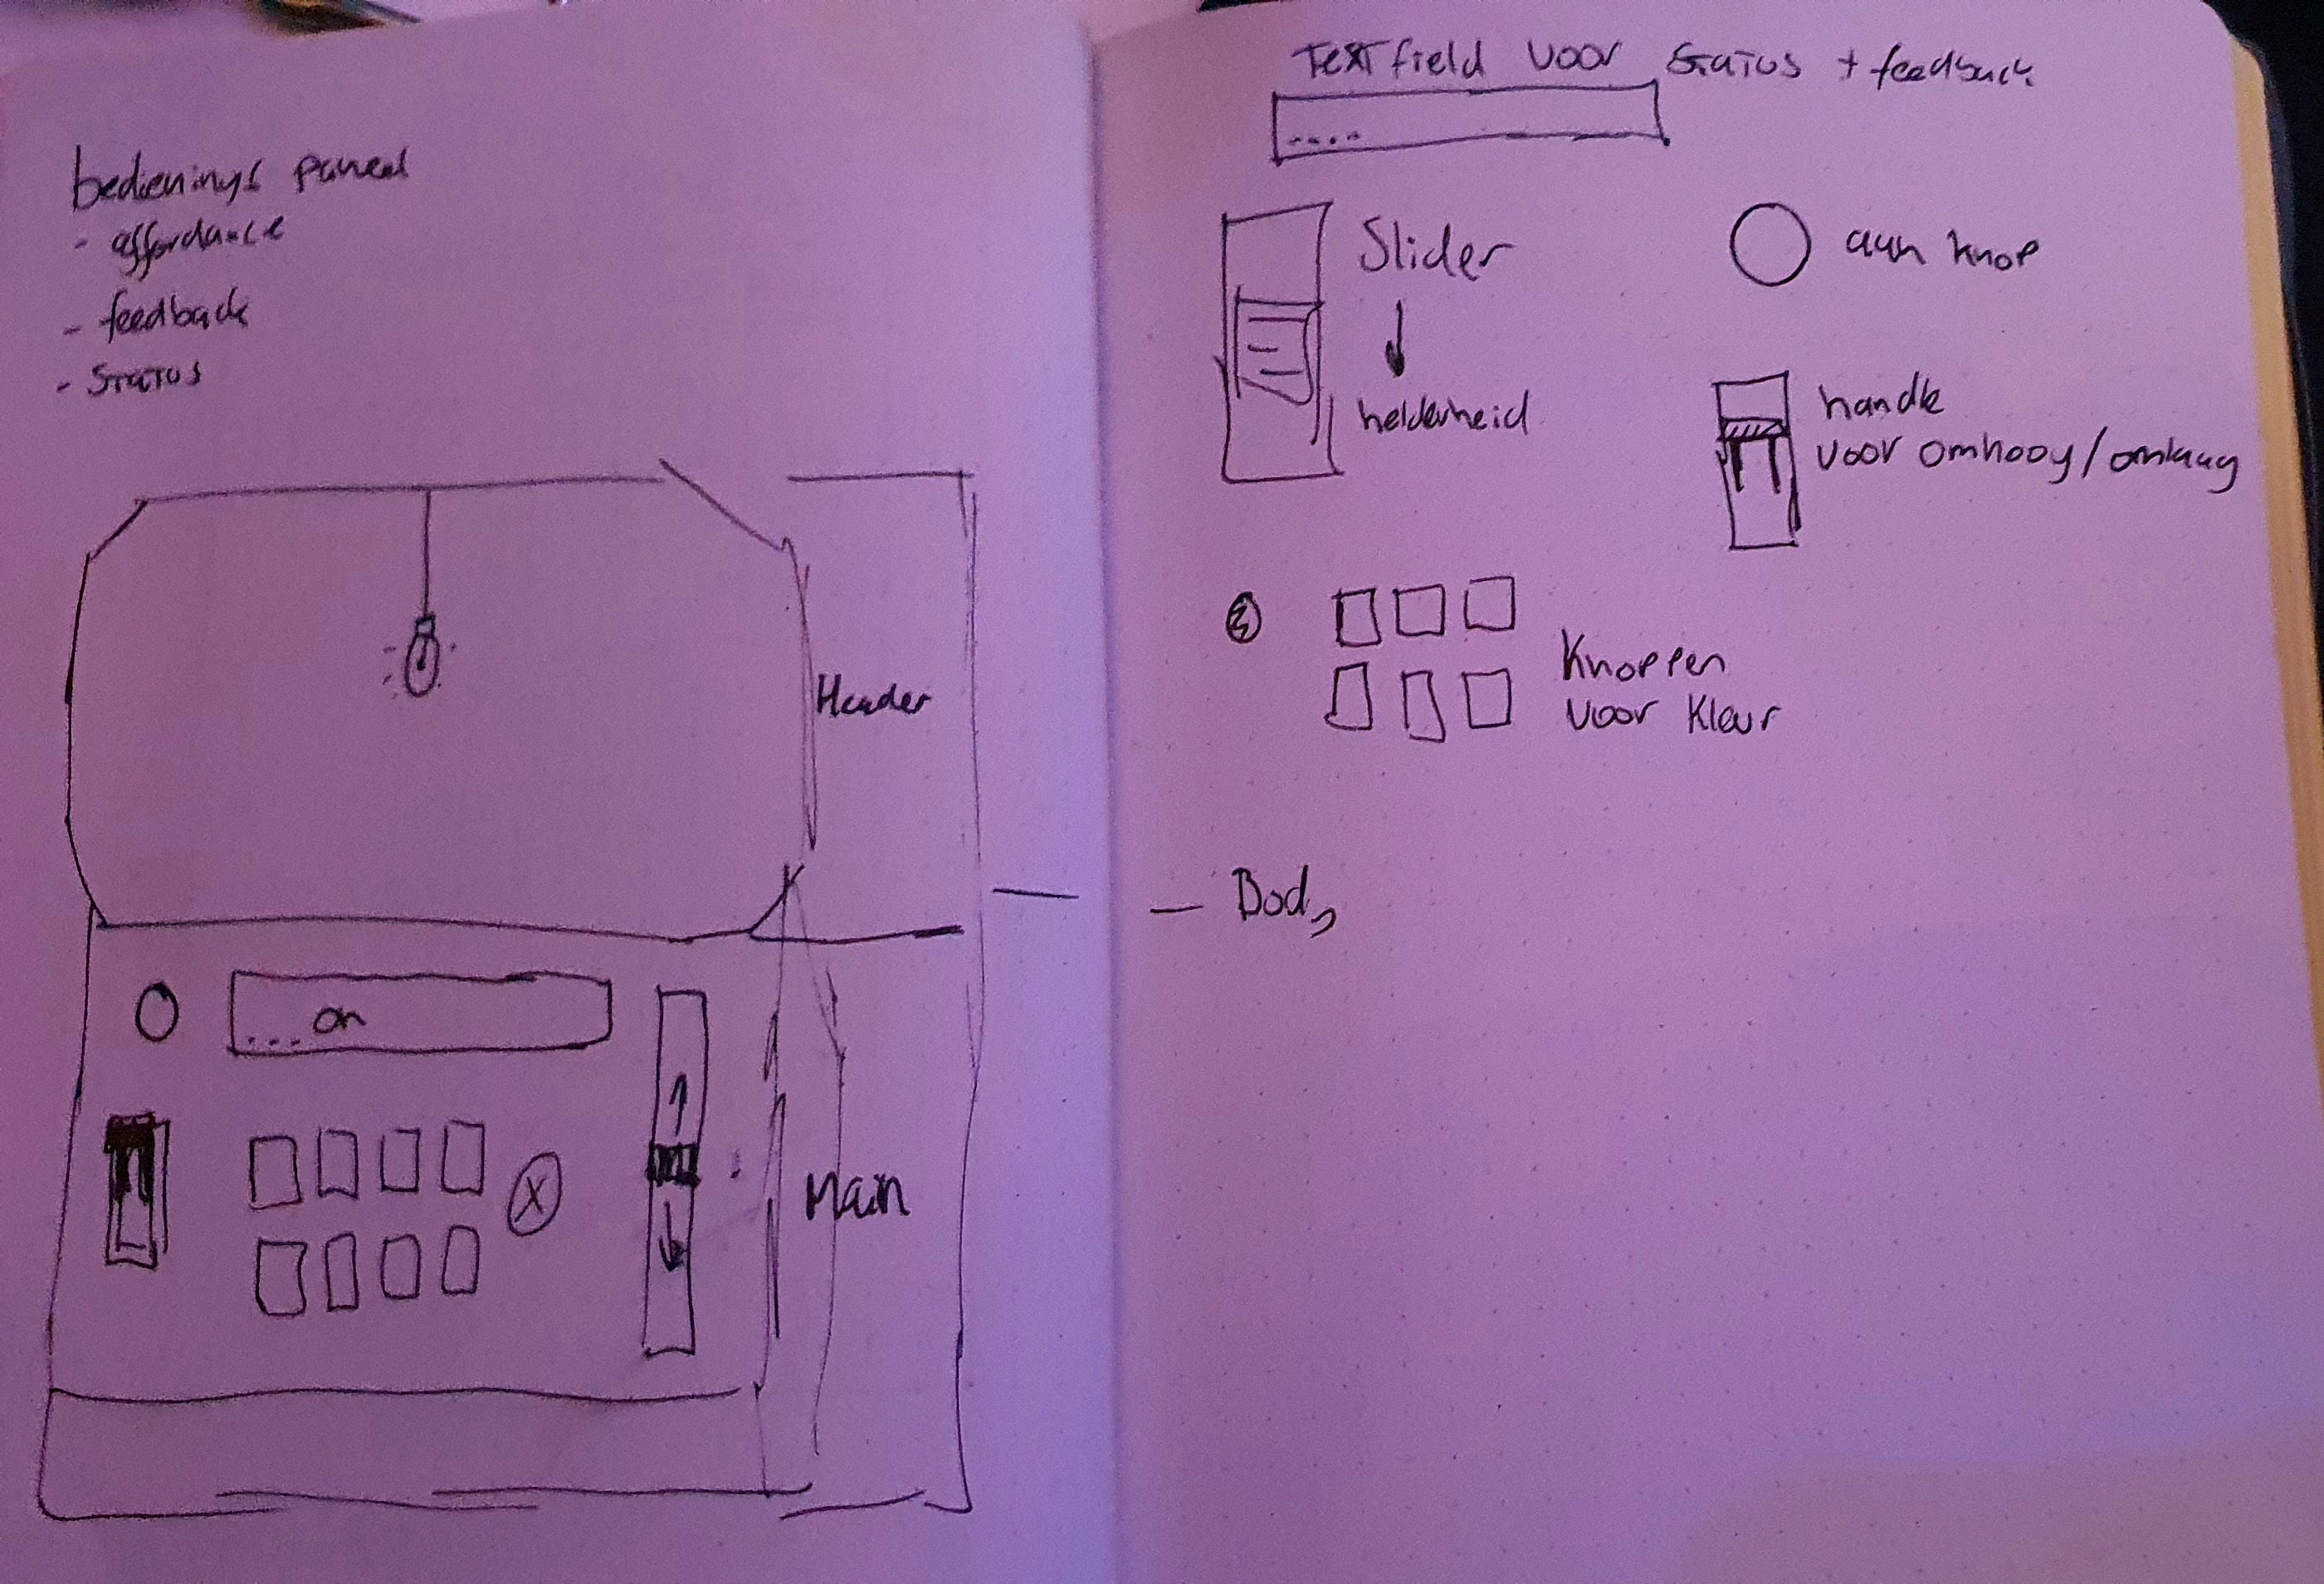 bedienings paneel
- affordance
- feedback
- Status
Header
... on
X
Main
Textfield voor Status + feedback
....
Slider
helderheid
aan knop
handle
voor omhoog/omlaag
Knoppen
voor Kleur
Body